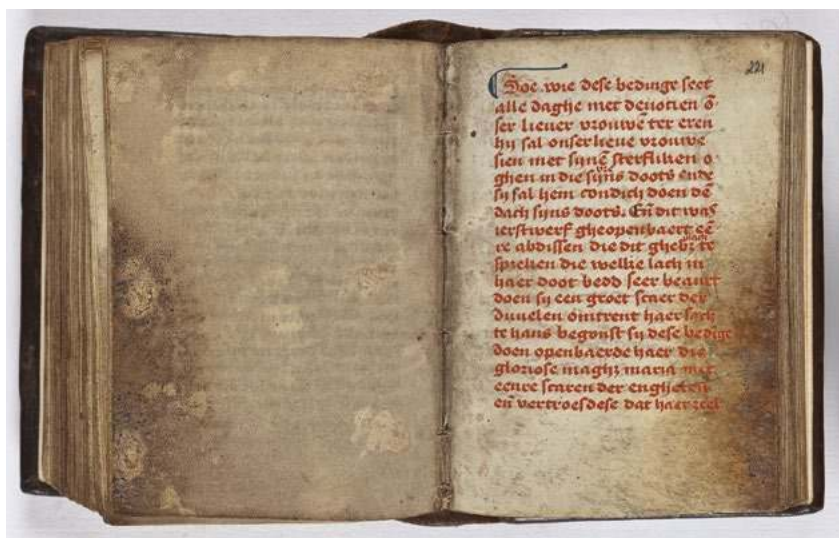 221
Soe wie dese bedinge leet
alle daghe met deuotien ō
ser lieuer vrouwē ter eren
hij sal onser lieue vrouwe
sien met sijnē sterfliken o
ghen in die sijns doots ende
sij sal hem condich doen dē
dach sijns doots. En̄ dit was
ierstwerf gheopenbaert eē
re abdissen die dit ghebz te
spreken die welke lach in
haer doot bedd seer beanxt
doen sij een groet scaer der
duuelen omtrent haer sach
te hans begonst sij dese bedige
doen openbaerde haer die
gloriose maghz maria met
eenre scaren der enghelen
en̄ vertroestese dat haer ziel